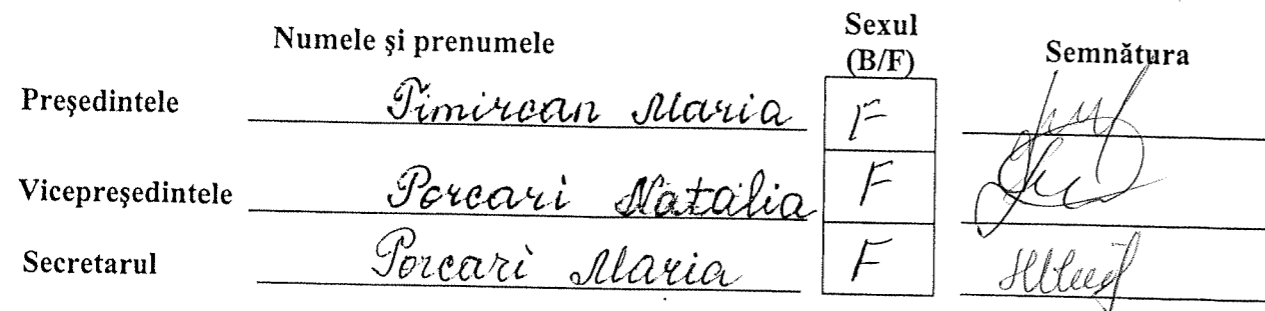 Numele și prenumele Sexul (B/F) Semnătura
Președintele Timircan Maria F
Vicepreședintele Porcari Natalia F
Secretarul Porcari Maria F